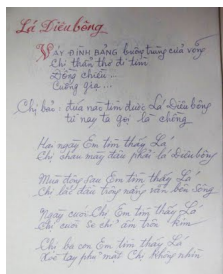 Lá Diêu bông
VÁY ĐÌNH BẢNG buông trùng cửa võng
Chị thẩn thơ đi tìm
Đồng chiều...
Cuống rạ...
Chị bảo: đứa nào tìm được Lá Diêu bông
từ nay ta gọi là chồng
Hai ngày Em tìm thấy Lá
Chị chau mày đâu phải Lá Diêu bông
Mùa đông sau Em tìm thấy Lá
Chị lắc đầu trông nắng vãn bên sông
Ngày cưới Chị Em tìm thấy Lá
Chị cười xe chỉ ấm trôn kim
Chị ba con Em tìm thấy Lá
Xòe tay phủ mặt Chị không nhìn